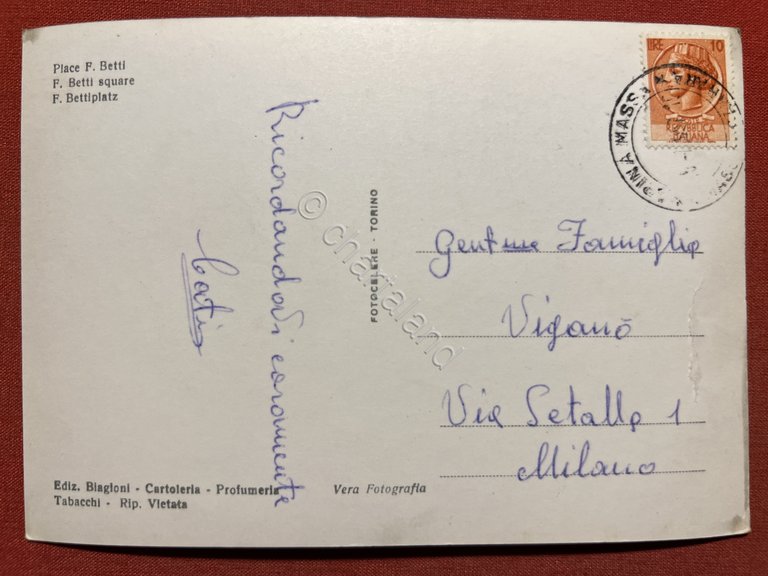 Place F. Betti
F. Betti square
F. Bettiplatz
LIRE 10
REPVBBLICA
ITALIANA
MASSA
Ricordandovi caramente
FOTOCELERE - TORINO
Gent.me Famiglia
Viganò
Via Setalla 1
Milano
Ediz. Biagioni - Cartoleria - Profumeria
Tabacchi - Rip. Vietata
Vera Fotografia
© chartaland